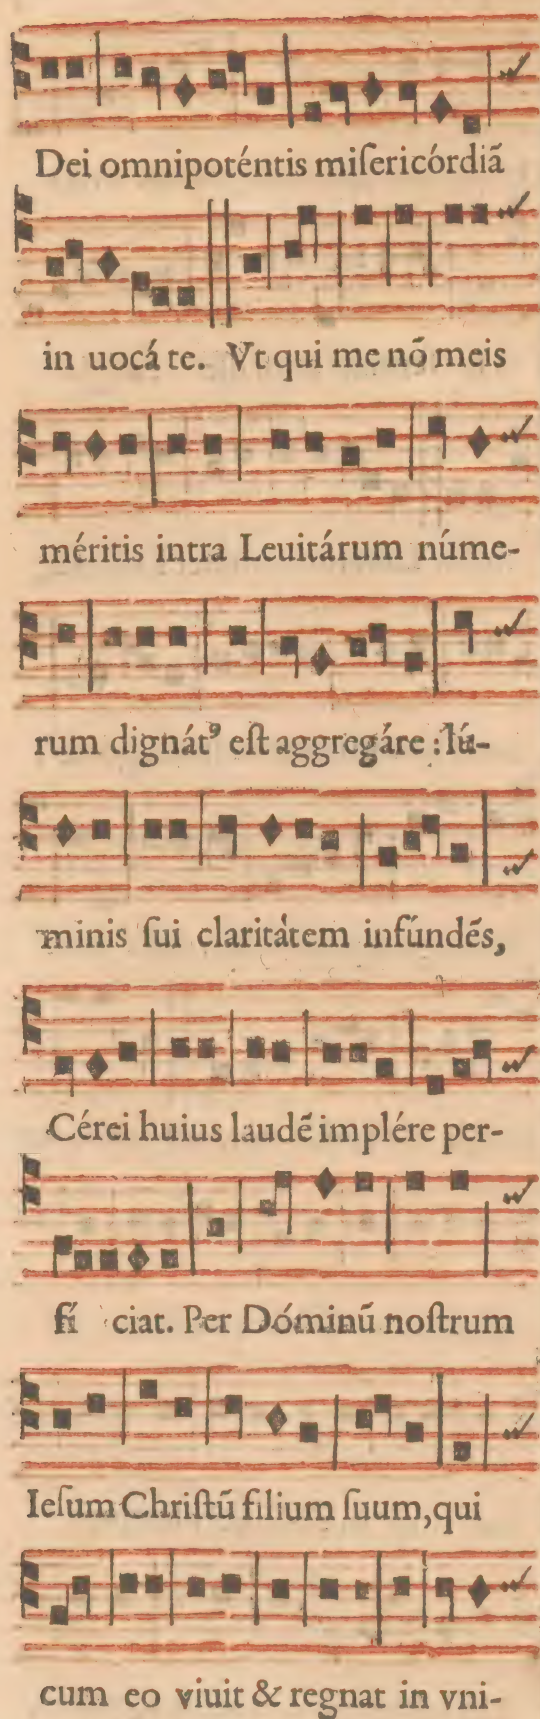 Dei omnipoténtis miſericórdiã
in uocá te. Vt qui me nõ meis
méritis intra Leuitárum núme-
rum dignátꝰ eſt aggregáre : lú-
minis ſui claritátem infúndẽs,
Cérei huius laudẽ implére per-
fí ciat. Per Dóminũ noſtrum
Ieſum Chriſtũ filium ſuum, qui
cum eo viuit & regnat in vni-